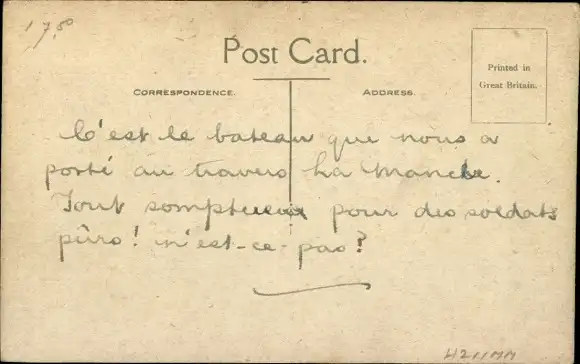 17,50
Post Card.
Printed in
Great Britain.
CORRESPONDENCE.
ADDRESS.
C'est le bateau que nous a
porté au travers La Manche.
Tout somptueux pour des soldats
pûrs! n'est-ce-pas?